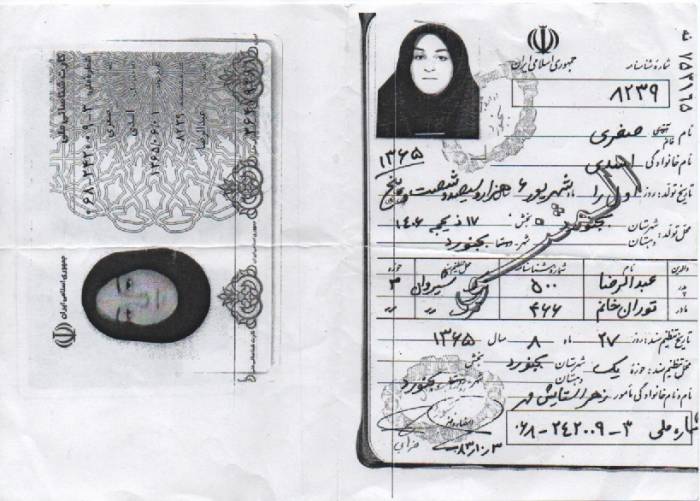 جمهوری اسلامی ایران
شماره شناسنامه
۸۲۳۹
۷۵۲۱۶۵
نام خانم صغری
نام خانوادگی اسدی
۱۳۶۵
تاریخ تولد: روز اول ماه شهریور هزار و سیصد و شصت و پنج
۱۷ ذیحجه ۱۴۰۶
محل تولد: شهرستان بجنورد بخش
دهستان شهر بجنورد
والدین نام شماره شناسنامه محل تنظیم حوزه
پدر عبدالرضا ۵۰۰ شیروان ۳
مادر توران خانم ۴۶۶
تاریخ تنظیم سند: روز ۲۷ ماه ۸ سال ۱۳۶۵
محل تنظیم سند: حوزه یک شهرستان بجنورد بخش
دهستان شهر بجنورد
نام و نام خانوادگی مامور زهرا ستایش مهر
شماره ملی ۰۶۸-۲۴۲۰۰۹-۳
کارت شناسائی ملی
شماره ملی ۰۶۸-۲۴۲۰۰۹-۳
صغری
اسدی
۱۳۶۵/۰۶/۰۱
۸۲۳۹
عبدالرضا
جمهوری اسلامی ایران